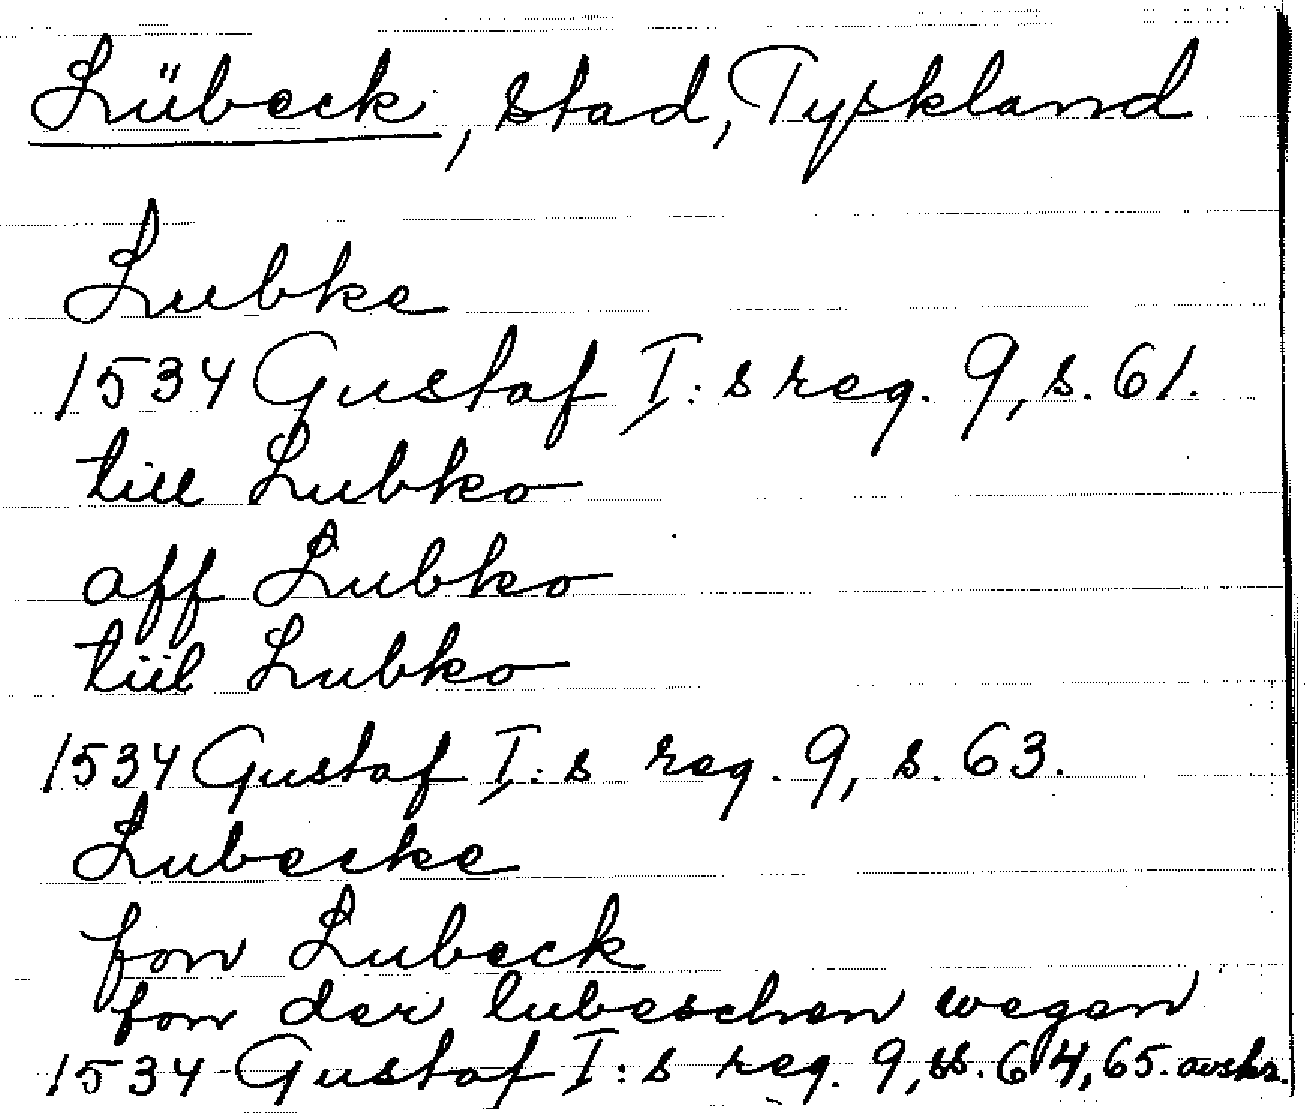 Lübeck, stad, Tyskland
Lubke
1534 Gustaf I:s reg. 9, s. 61.
till Lubko
aff Lubko
tiil Lubko
1534 Gustaf I:s reg. 9, s. 63.
Lubecke
fon Lubeck
fon der lubeschen wegen
1534 Gustaf I:s reg. 9, ss. 64, 65. avskr.